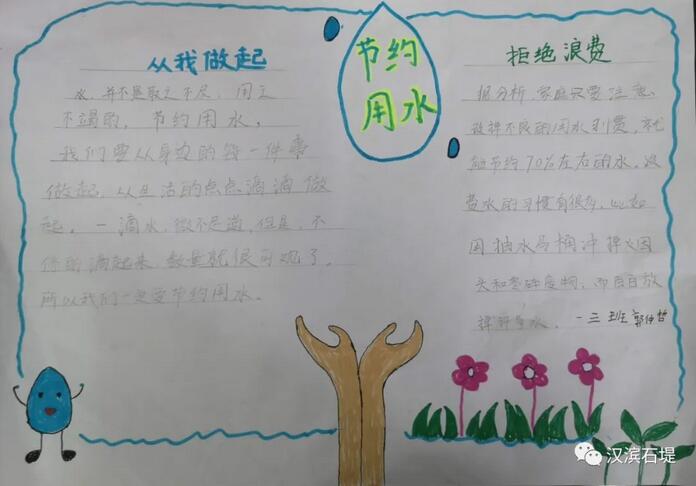 从我做起
水，并不是取之不尽，用之
不竭的，节约用水，
我们要从身边的每一件事
做起，从生活的点点滴滴做
起。一滴水，微不足道，但是，不
停的滴起来，数量就很可观了。
所以我们一定要节约用水。
节约
用水
拒绝浪费
据分析，家庭只要注意
改掉不良的用水习惯，就
能节约70%左右的水。浪
费水的习惯有很多，比如
用抽水马桶冲掉烟
头和零碎废物，
一三班
汉滨石堤